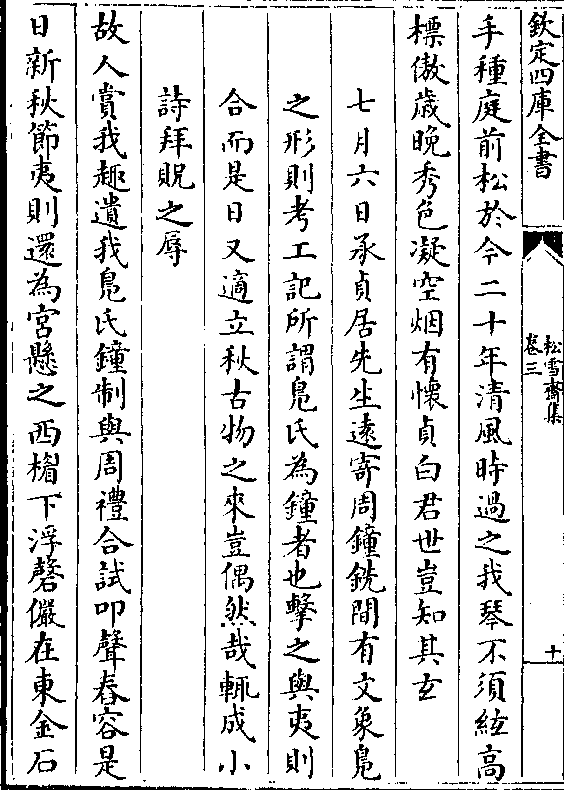 欽定四庫全書
松雪齋集
卷三
十
手種庭前松於今二十年清風時過之我琴不須絃高
標傲歲晚秀色凝空烟有懷貞白君世豈知其玄
七月六日承貞居先生遠寄周鐘銑間有文象鳧
之形則考工記所謂鳧氏為鐘者也擊之與夷則
合而是日又適立秋古物之來豈偶然哉輒成小
詩拜貺之辱
故人賞我趣遺我鳧氏鐘制與周禮合試叩聲舂容是
日新秋節夷則還為宫懸之西楣下浮磬儼在東金石